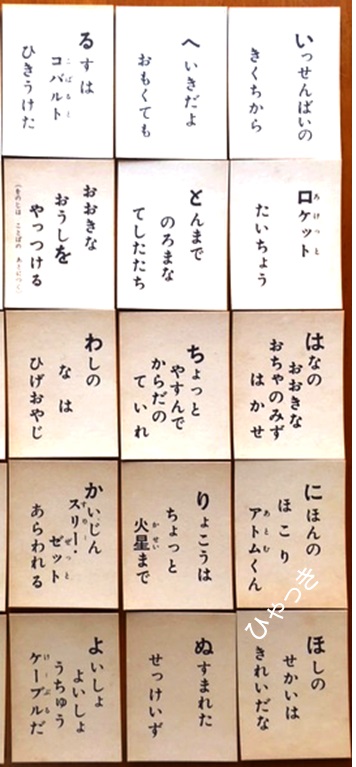 いっせんばいの
きくちから
ロケット
ろけっと
たいちょう
はなの
おおきな
おちゃのみず
はかせ
にほんの
ほこり
アトムくん
あとむ
ひゃっき
ほしの
せかいは
きれいだな
へいきだよ
おもくても
とんまで
のろまな
てしたたち
ちょっと
やすんで
からだの
ていれ
りょこうは
ちょっと
火星まで
かせい
ぬすまれた
せっけいず
るすは
コバルト
こばると
ひきうけた
おおきな
おうしを
やっつける
(をのじは ことばの あとにつく)
わしの
なは
ひげおやじ
かいじん
スリー・
すりー
ゼット
ぜっと
あらわれる
よいしょ
よいしょ
うちゅう
ケーブルだ
けーぶる